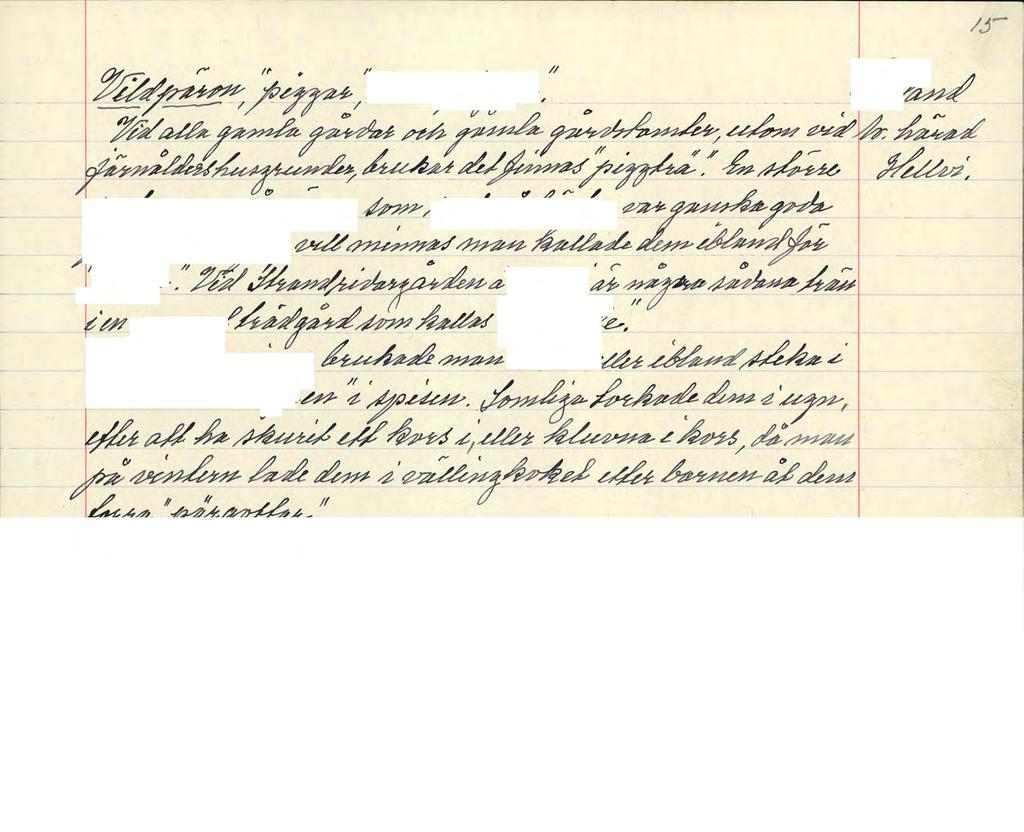 15
Vildpäron, "pizzar," "
Vid alla gamla gårdar och gamla gårdstomter, utom vid
järnåldershusgrunder, brukar det finnas "pizzträ". En större
som var ganska goda
vill minnas man kallade dem ibland för
". Vid Strandridargården är några sådana trän
i en trädgård som kallas
brukade man eller ibland steka i
i spisen. Somliga torkade dem i ugn,
efter att ha skurit ett kors i, eller kluvna i kors, då man
på vintern lade dem i vällingkoket eller barnen åt dem
n. härad
Hellvi.